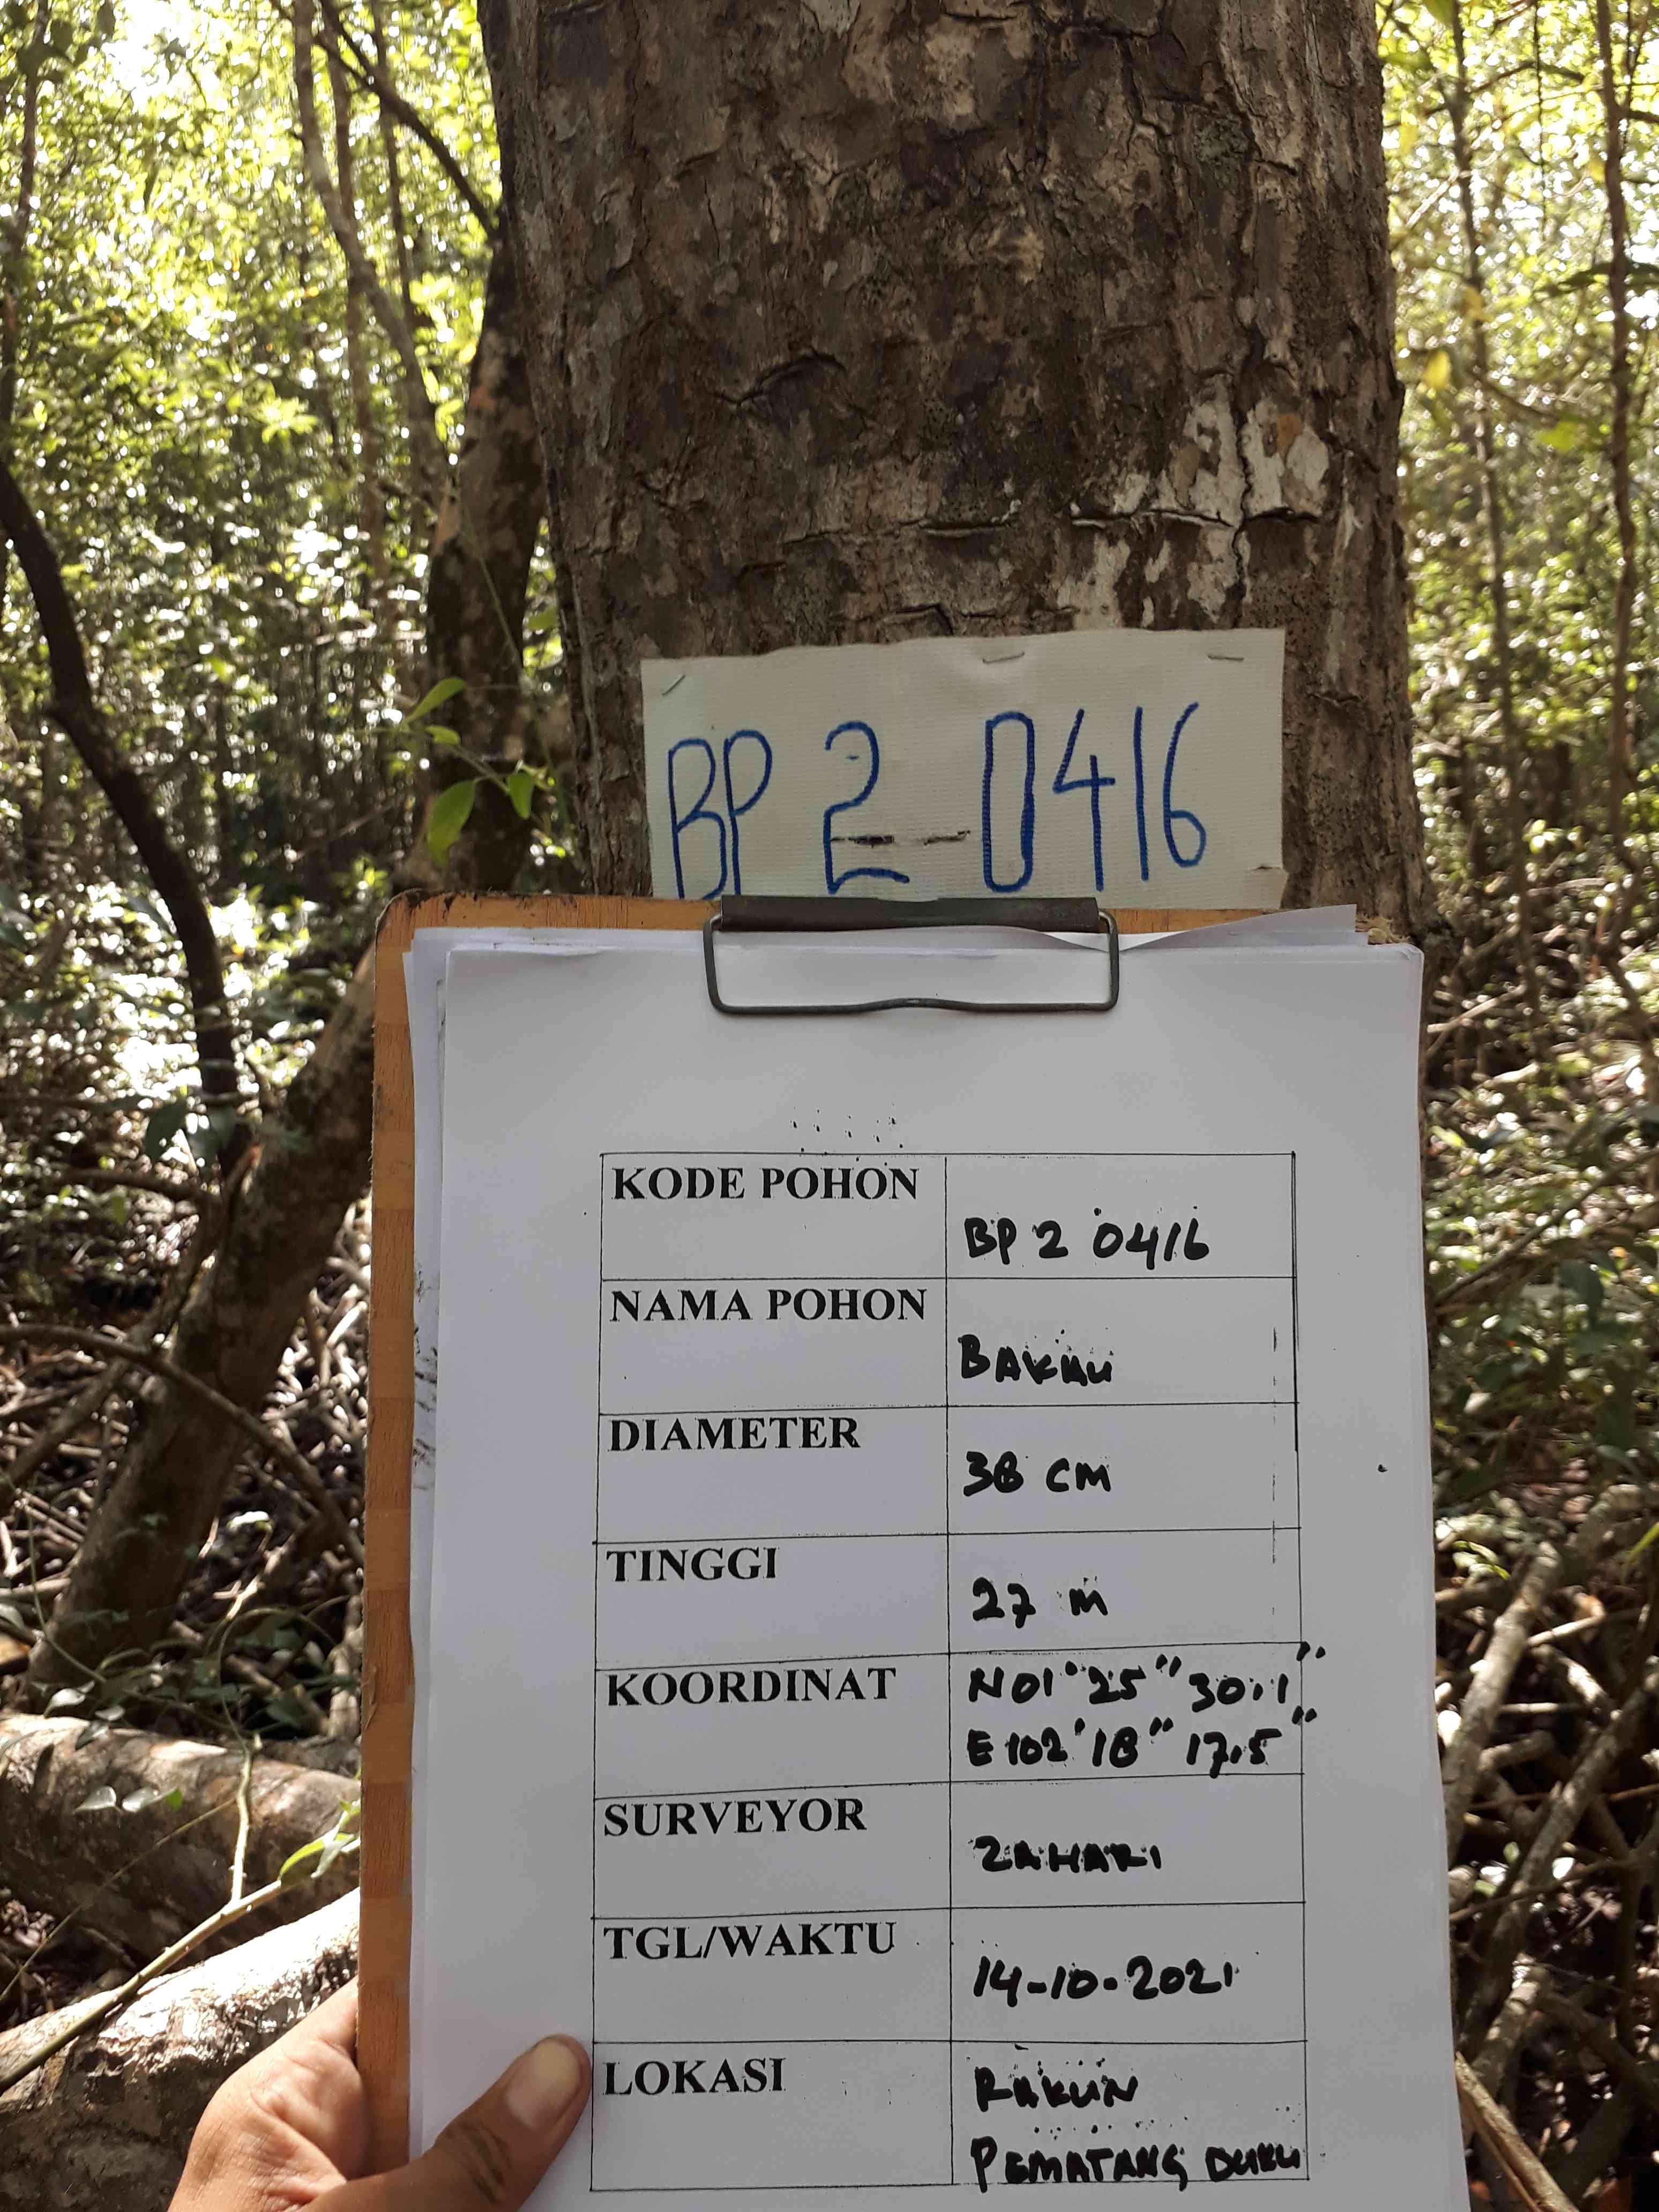 BP 2 0416
KODE POHON
BP 2 0416
NAMA POHON
BAKAU
DIAMETER
38 CM
TINGGI
27 M
KOORDINAT
N 01° 25" 30.1"
E 102° 18" 17.5"
SURVEYOR
ZAHARI
TGL/WAKTU
14-10-2021
LOKASI
RAKUN
PEMATANG DUKU